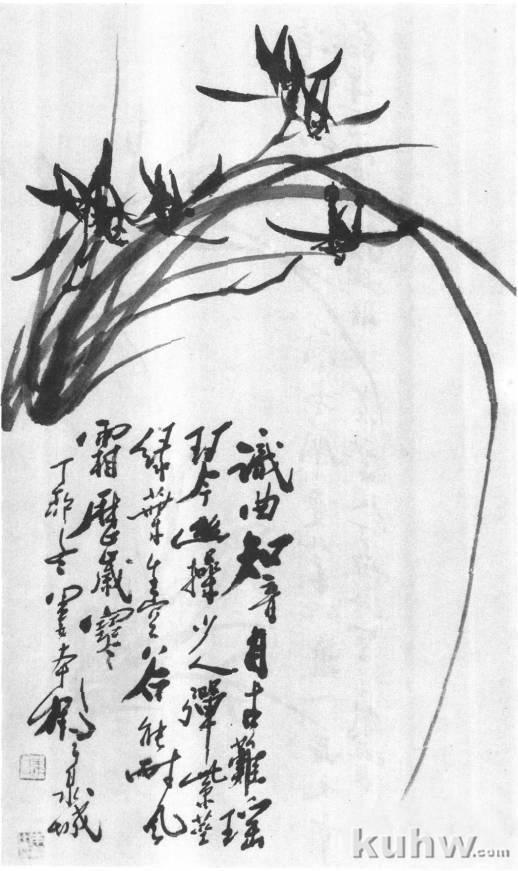 識曲知音自古難瑶
琴幽操少人彈紫莖
緑葉生空谷能耐風
霜歷歲寒
丁卯 泉城
kuhw.com